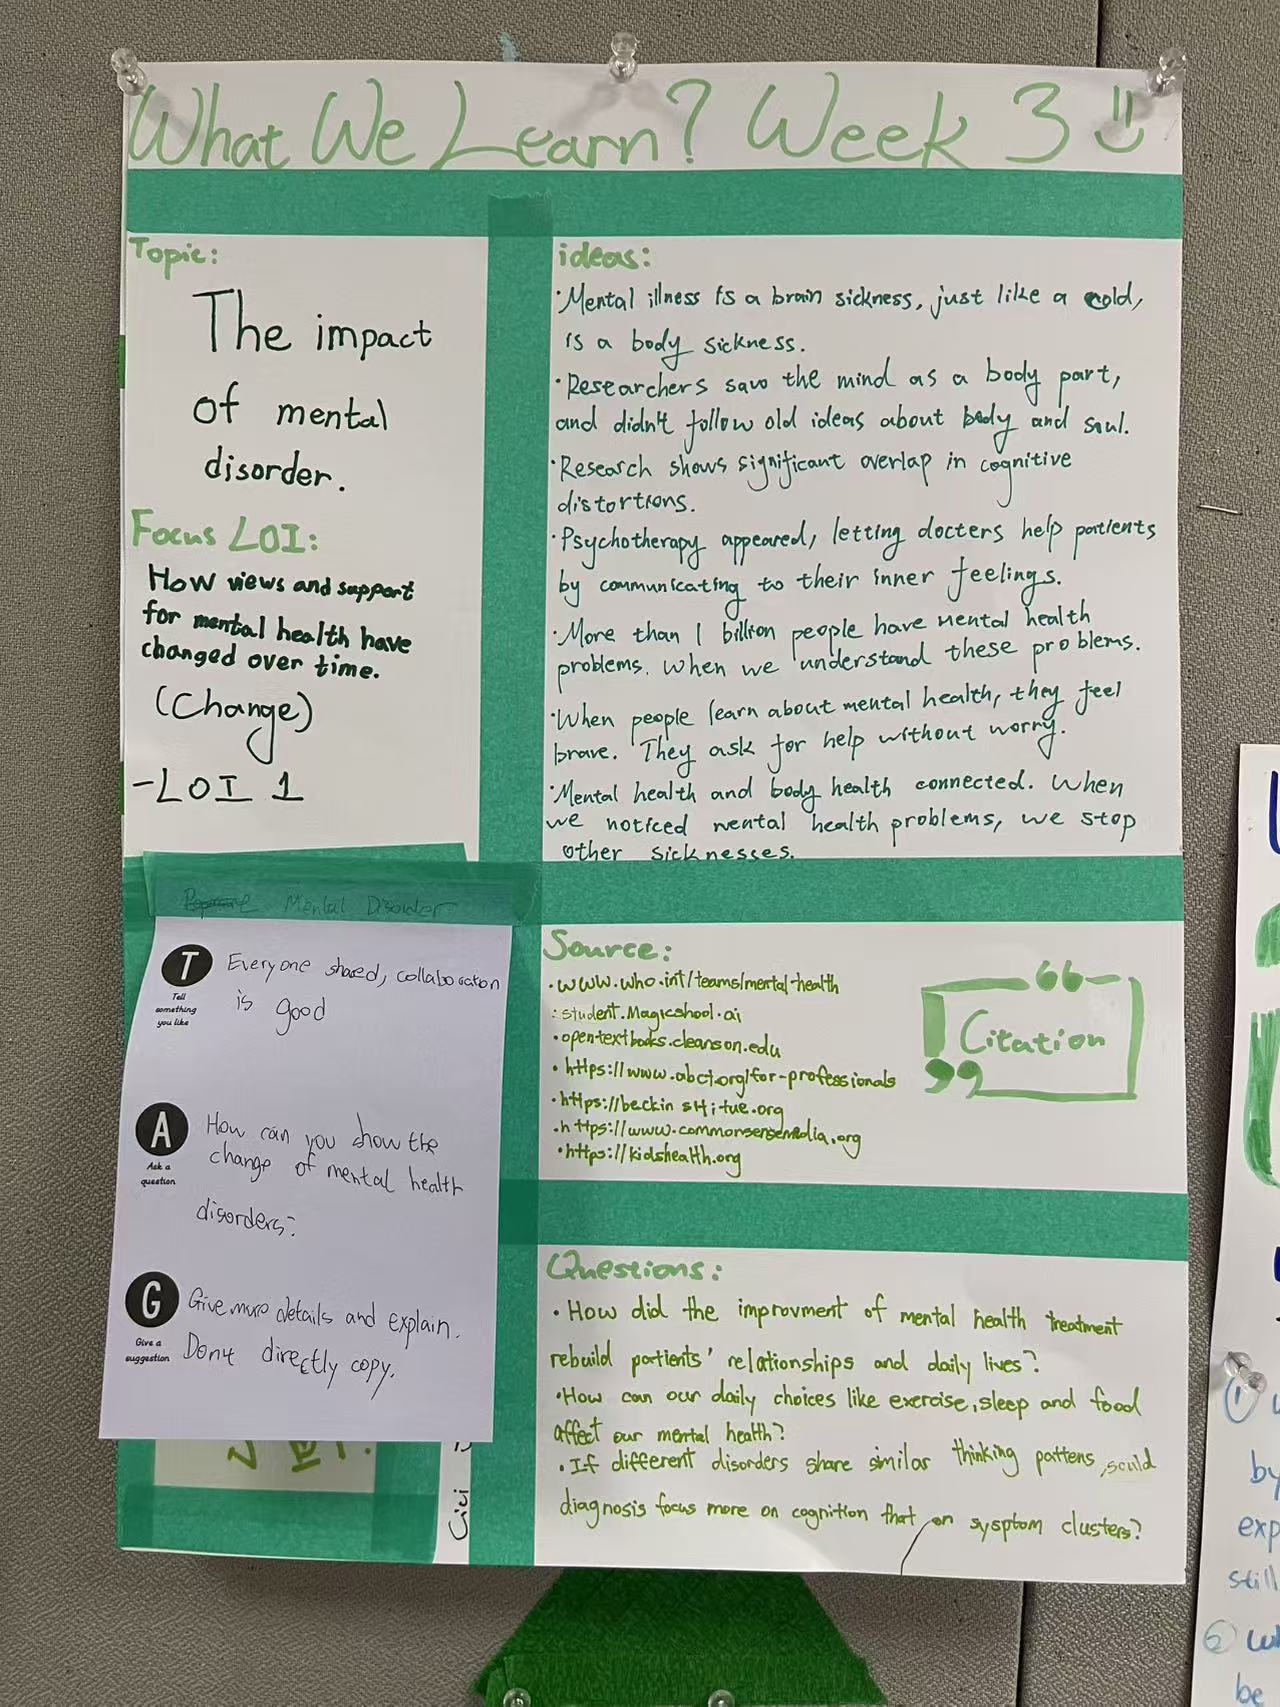 What We Learn? Week 3
Topic:
The impact
of mental
disorder.
Focus LOI:
How views and support
for mental health have
changed over time.
(Change)
-LOI 1
ideas:
·Mental illness is a brain sickness, just like a cold,
is a body sickness.
·Researchers saw the mind as a body part,
and didn't follow old ideas about body and soul.
·Research shows significant overlap in cognitive
distortions.
·Psychotherapy appeared, letting docters help patients
by communicating to their inner feelings.
·More than 1 billion people have mental health
problems. When we understand these problems.
·When people learn about mental health, they feel
brave. They ask for help without worry.
·Mental health and body health connected. When
we noticed mental health problems, we stop
other sicknesses.
Mental Disorder
T
Tell
something
you like
Everyone shared, collaboration
is good
A
Ask a
question
How can you show the
change of mental health
disorders?
G
Give a
suggestion
Give more details and explain.
Dont directly copy.
Cici
Source:
·www.who.int/teams/mental-health
:student.Magicshool.ai
·opentextbooks.cleanson.edu
·https://www.abct.org/for-professionals
·https://beckinstitue.org
·https://www.commonsensemedia.org
·https://kidshealth.org
“ Citation ”
Questions:
·How did the improvment of mental health treatment
rebuild patients' relationships and daily lives?
·How can our daily choices like exercise, sleep and food
affect our mental health?
·If different disorders share similar thinking pattens, sould
diagnosis focus more on cognition that on sysptom clusters?
①
by
exp
still
②
be